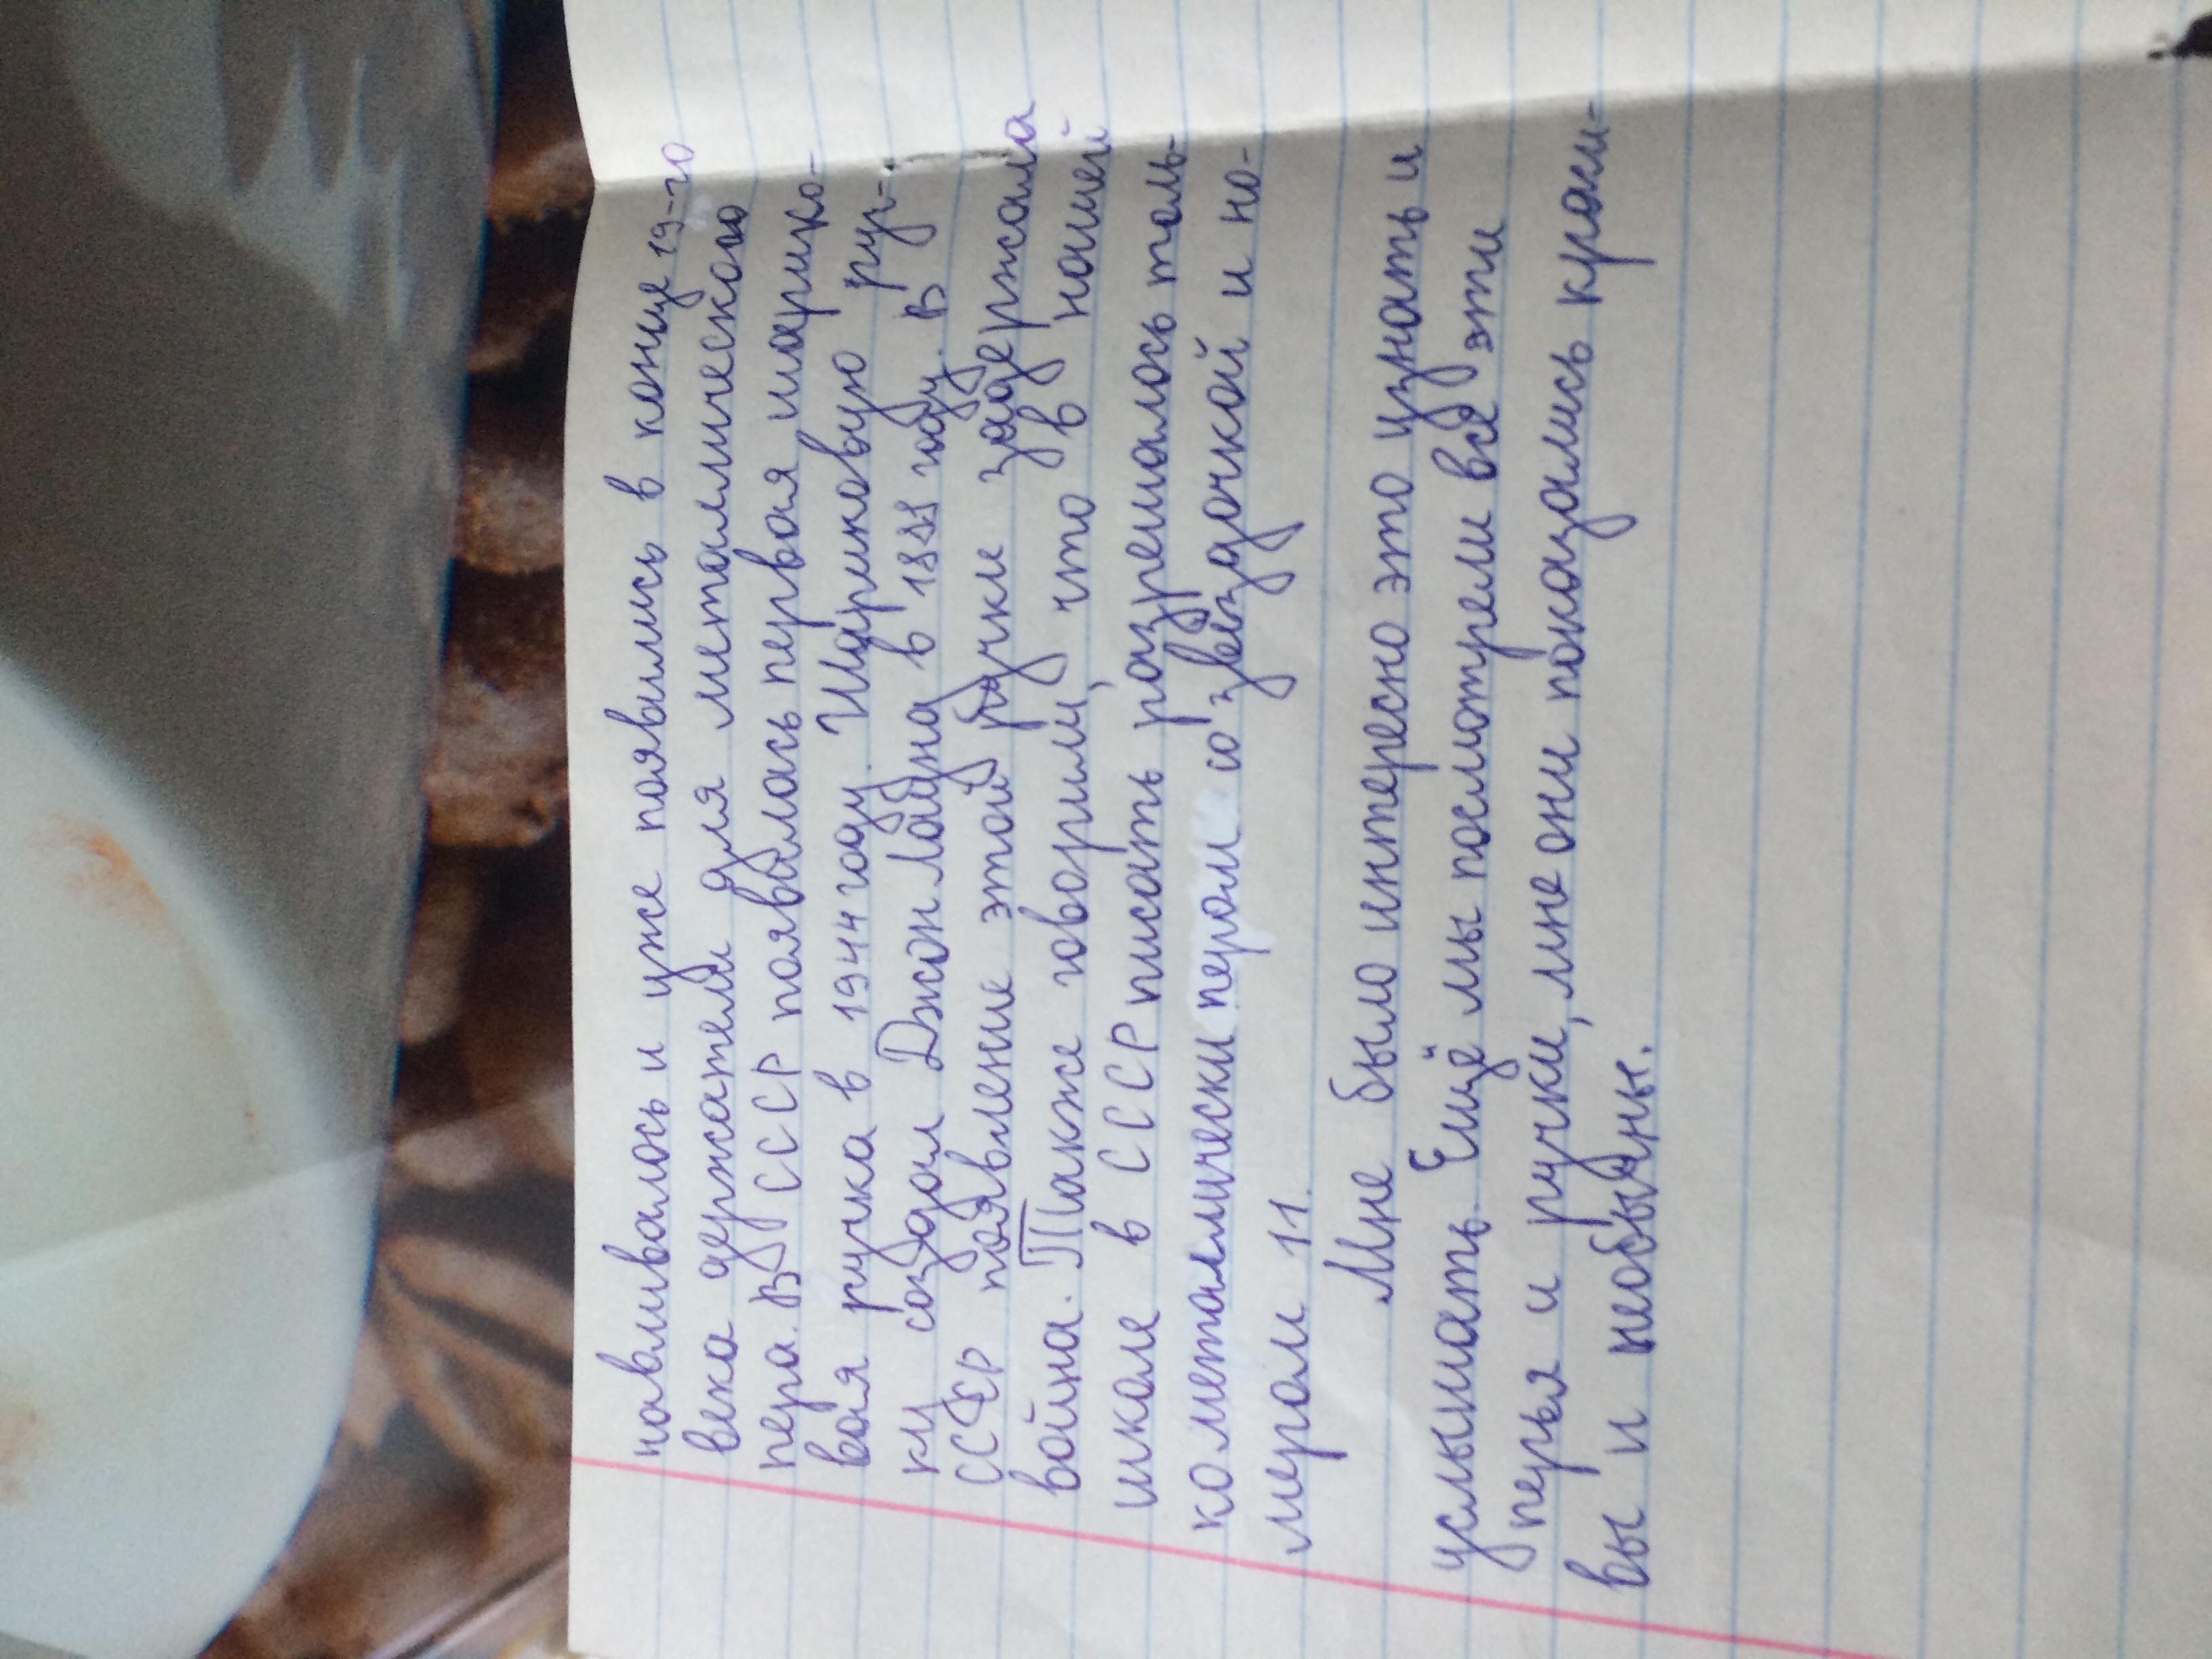 навливалось и уже появились в конце 19-го
века держатели для металлического
пера. В СССР появилась первая шарико-
вая ручка в 1944 году. Шариковую руч-
ку создал Джон Лауна в 1888 году. В
СССР появление этой ручки задержала
война. Также говорили, что в нашей
школе в СССР писать разрешалось толь-
ко металлически пером со звездочкой и но-
мером 11.
Мне было интересно это узнать и
услышать. Ещё мы посмотрели все эти
перья и ручки, мне они показались краси-
вы и необычны.